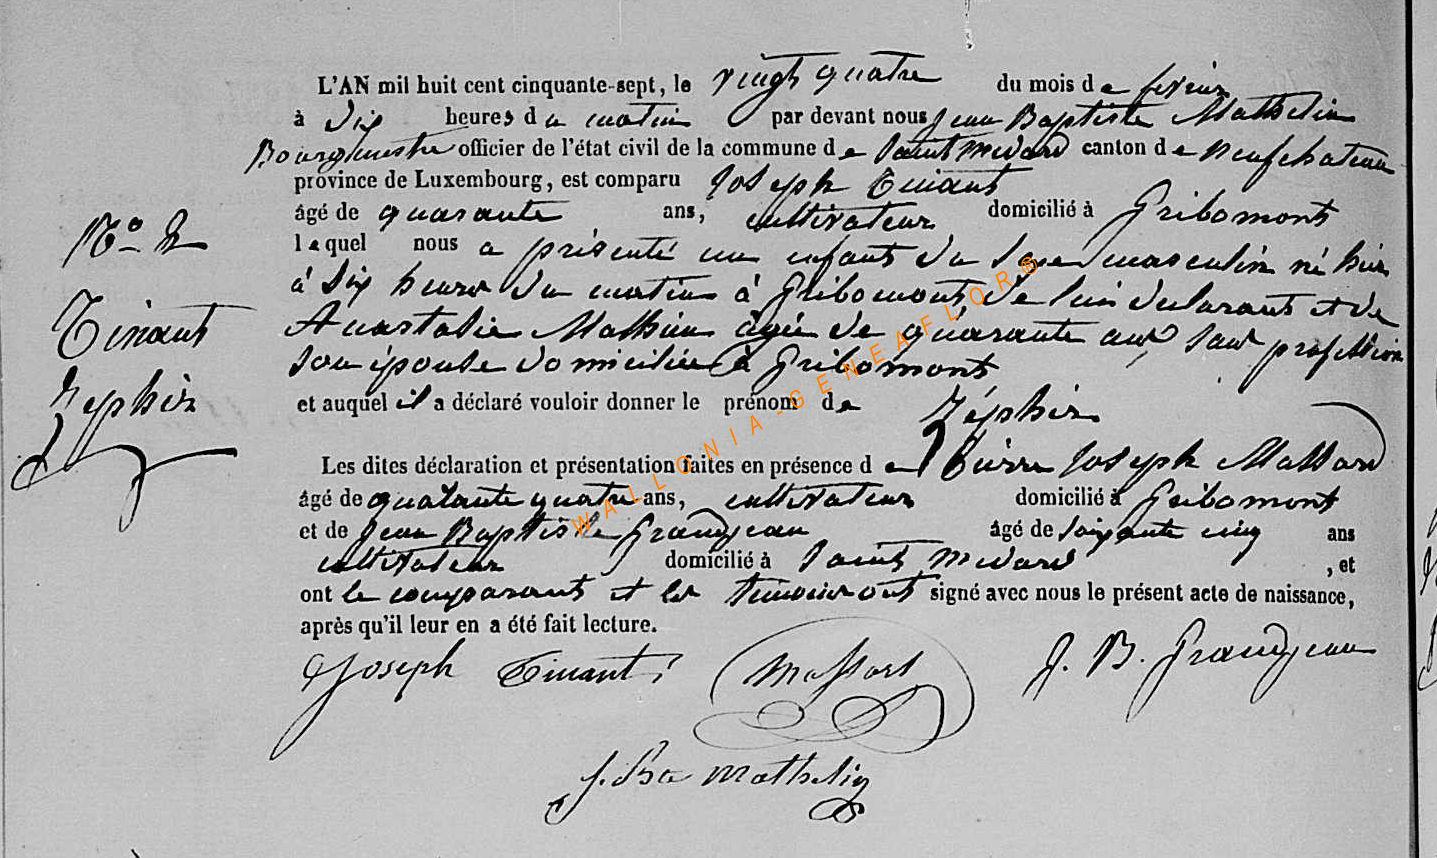 L'AN mil huit cent cinquante-sept, le vingt quatre du mois de fevrier
à dix heures du matin par devant nous Jean Baptiste Mathelin
Bourgmestre officier de l'état civil de la commune de Saint Médard canton de Neufchateau
province de Luxembourg, est comparu Joseph Tinant
âgé de quarante ans, cultivateur domicilié à Gribomont
lequel nous a présenté un enfant du sexe masculin né hier
à six heures du matin à Gribomont de lui déclarant et de
Anastasie Mathieu âgée de quarante ans sans profession
son épouse domiciliée à Gribomont
et auquel il a déclaré vouloir donner le prénom de Zéphir
Les dites déclaration et présentation faites en présence de Pierre Joseph Massard
âgé de quarante quatre ans, cultivateur domicilié à Gribomont
et de Jean Baptiste Grandjean âgé de soixante cinq ans
cultivateur domicilié à Saint Médard , et
ont le comparant et les témoins ont signé avec nous le présent acte de naissance,
après qu'il leur en a été fait lecture.
No 2
Tinant
Zephir
Joseph Tinant
Massart
J. B. Grandjean
J. Bte Mathelin
WALLONIA-GENEAFLORE